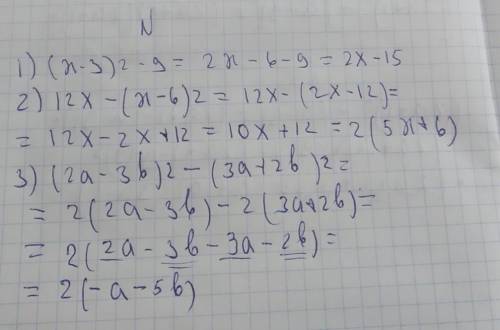 N
1) (x-3)2-9= 2x-6-9=2x-15
2) 12x-(x-6)2=12x-(2x-12)=
=12x-2x+12=10x+12=2(5x+6)
3) (2a-3b)2-(3a+2b)2=
=2(2a-3b)-2(3a+2b)=
=2(2a-3b-3a-2b)=
=2(-a-5b)